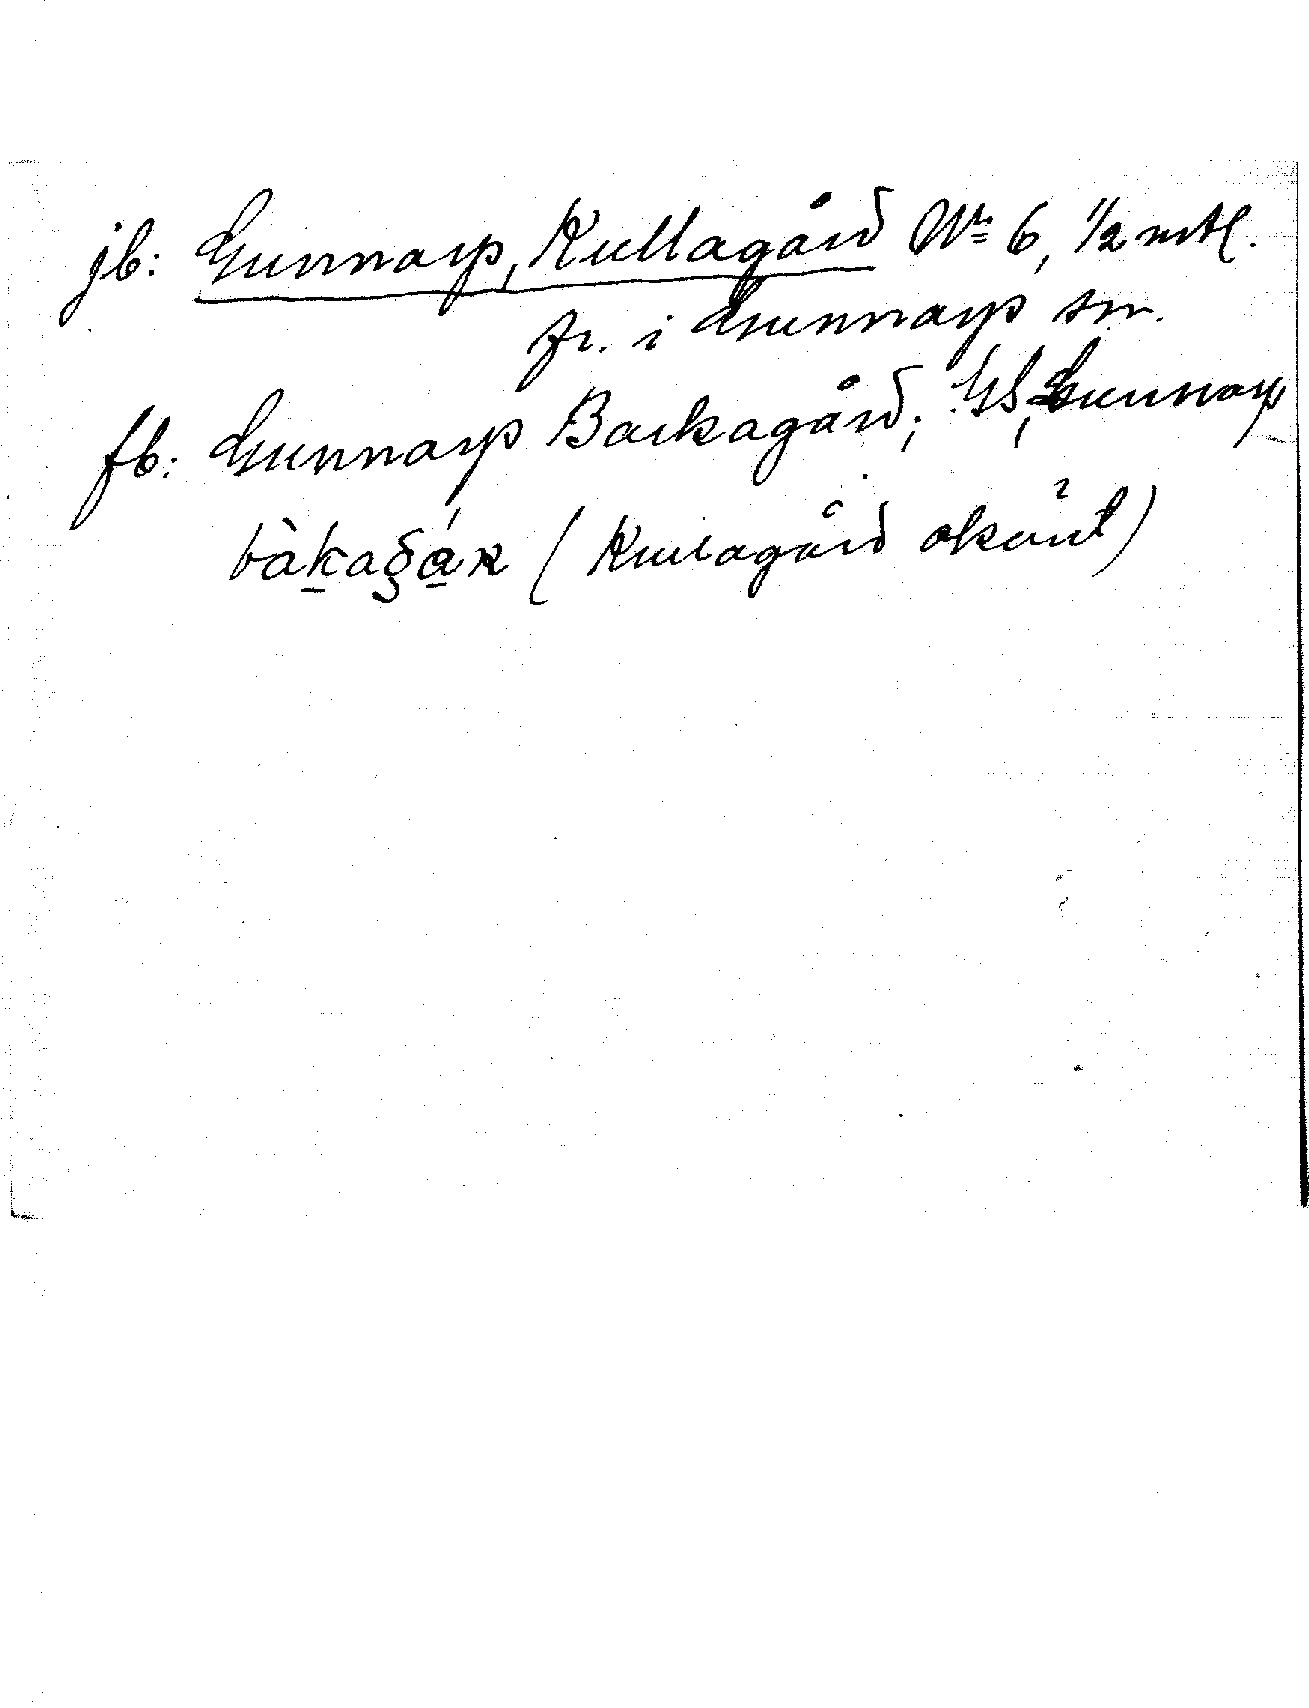 jb: Gunnarp, Kullagård No 6, 1/2 mtl.
fr. i Gunnarp sn.
fb: Gunnarp Backagård; GS, Gunnarp
bàkagár (Kullagård okänt)